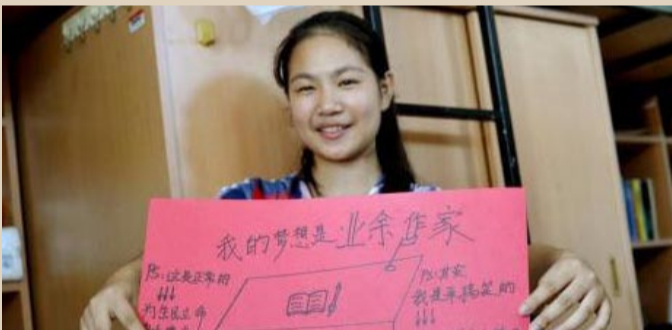 我的梦想是业余作家
PS:这是正常的
↓↓↓
为生民立命
PS:其实
我是来搞笑的
↓↓↓